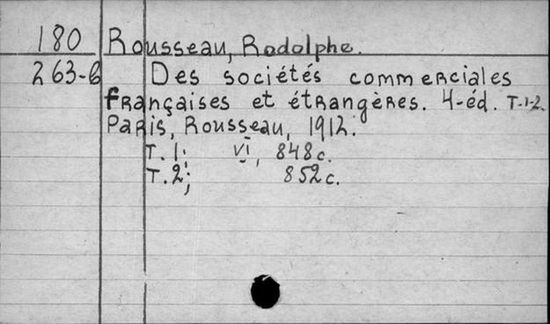 180 Rousseau, Rodolphe.
263-6 Des sociétés commerciales
françaises et étrangères. 4-éd. T.1-2.
Paris, Rousseau, 1912.
T. 1; VI, 848 c.
T. 2; 852 c.